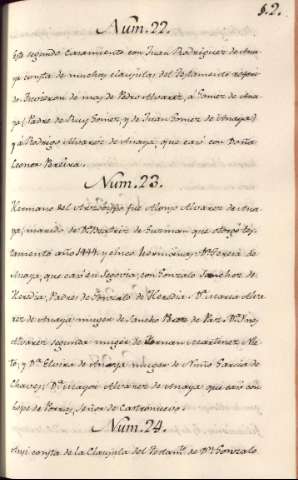 62.
Num. 22.
Este segundo Casamiento con Juan Rodriguez de Ana-
ya consta de muchas clausulas del Testamento
de may de Pedro Alvarez, a Gomez de Ana-
ya (Padre de Ruy Gomez, y de Juan Gomez de Anaya)
y a Rodrigo Alvarez de Anaya, que casó con Doña
Leonor Pereira.
Num. 23.
Hermano del Arzobispo fue Alonso Alvarez de Ana-
ya, marido de Dª Beatriz de Guzman que otorgó tes-
tamento año 1444 y cinco hermanas, Dª Teresa de
Anaya, que casó en Segovia, con Gonzalo Sanchez de
Heredia, Padres de Gonzalo de Heredia. Dª Maria Alva-
rez de Anaya muger de Sancho de Paz. Dª Ynes
Alvarez segunda muger de Hernan Martinez
y Dª Elvira de Anaya muger de Nuño Garcia de
Chaves, Dª Mayor Alvarez de Anaya que casó con
Lope de Porras, Señor de Castronuevo.
Num. 24.
Aqui consta de la Clausula del Testamº de Dn Gonzalo